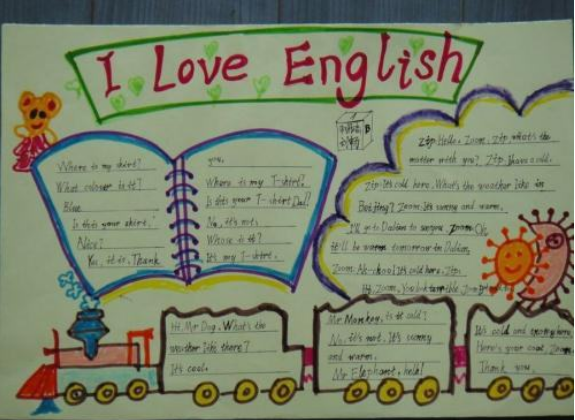 I Love English
Where is my skirt?
What colour is it?
Blue.
Is this your skirt,
Alice?
Yes, it is. Thank
you.
Where is my T-shirt?
Is this your T-shirt Dad?
No, it's not.
Whose is it?
It's my T-shirt.
B
Zip: Hello, Zoom. Zip what's the
matter with you? Zip: I have a cold.
Zip: It's cold here. What's the weather like in
Beijing? Zoom: It's sunny and warm.
I'll go to Dalian to Zoom: Oh,
it'll be warm tomorrow in Dalian.
Zoom: Ah-choo! It's cold here, Zip.
Zoom, You look terrible.
Hi, Mr Dog. What's the
weather like there?
It's cool.
Mr Monkey, is it cold?
No, it's not. It's sunny
and warm.
Mr Elephant, hello!
It's cold and here
Here's your coat, Zoom.
Thank you.